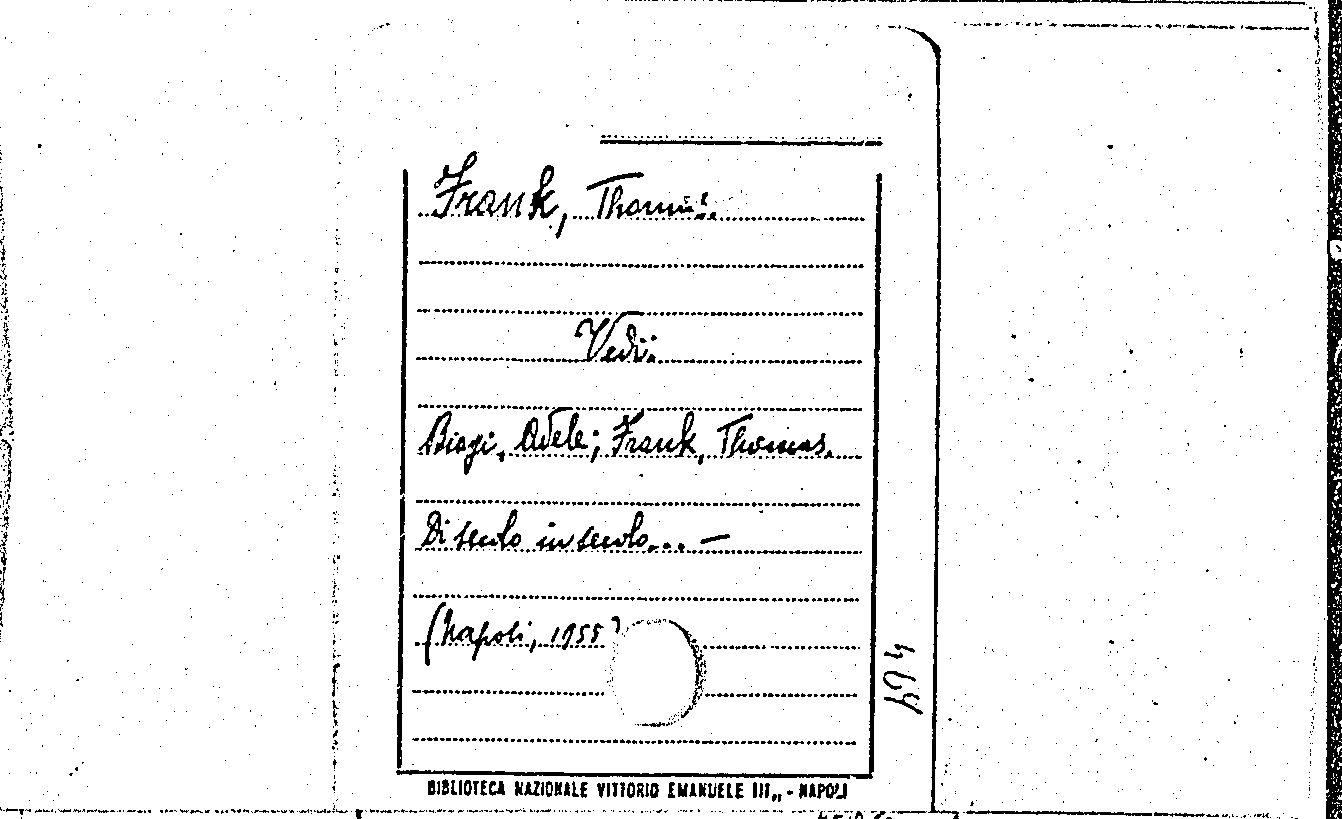 Frank, Thomas.
Vedi:
Biagi, Adele; Frank, Thomas.
Di secolo in secolo... —
(Napoli, 1955)
BIBLIOTECA NAZIONALE VITTORIO EMANUELE III„ - NAPOLI